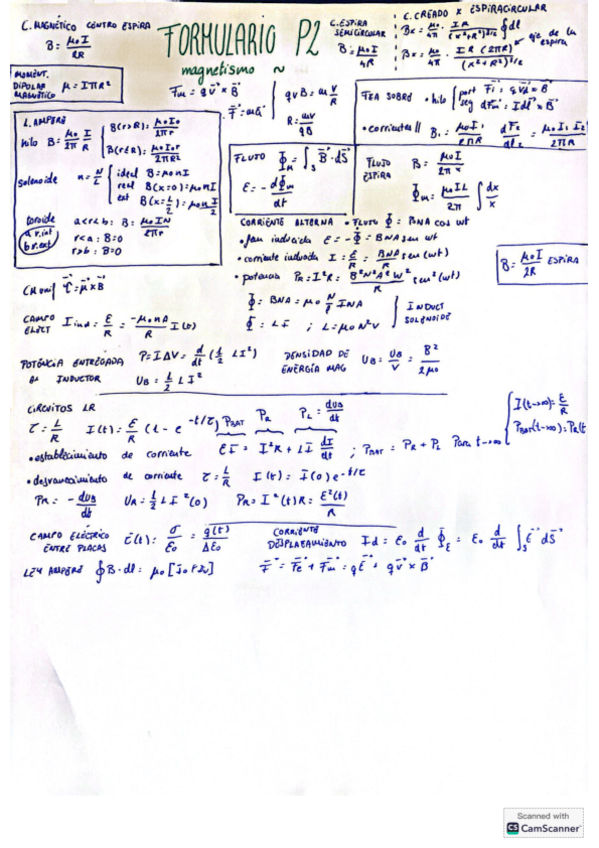 C. MAGNÉTICO CENTRO ESPIRA
B = μ₀I / 2R
FORMULARIO P2
magnetismo ~
C. ESPIRA SEMICIRCULAR
B = μ₀I / 4R
C. CREADO X ESPIRA CIRCULAR
Bx = μ₀/4π · IR / (x²+R²)^3/2 ∮dl
Bx = μ₀/4π · IR(2πR) / (x²+R²)^3/2 eje de la espira
MOMENT. DIPOLAR MAGNÉTICO μ = IπR²
Fm = qv × B
F = ma
qvB = m v/R
R = mv / qB
FZA SOBRE
• hilo
• corrientes //
L. AMPERE
hilo B = μ₀/2π I/R
B(r>R) = μ₀I₀ / 2πr
B(r≤R) = μ₀I₀r / 2πR²
solenoide n = N/L
ideal B = μ₀nI
real B(x=0) = μ₀nI
ext B(x=L/2) = μ₀nI / 2
toroide a<r<b: B = μ₀IN / 2πr
r<a : B=0
r>b : B=0
a r.int
b r.ext
FLUJO Φm = ∫s B · dS
ε = - dΦm / dt
FLUJO ESPIRA B = μ₀I / 2πx
Φm = μ₀IL / 2π ∫ dx/x
CORRIENTE ALTERNA • FLUJO Φ = BNA cos wt
• fem inducida ε = -Φ = BNA sen wt
• corriente inducida I = ε/R = BNA/R sen (wt)
• potencia PR = I²R = B²N²A²W² / R sen² (wt)
B = μ₀I / 2R ESPIRA
τ = μ × B
Φ = BNA = μ₀ N/ℓ INA
Φ = LI ; L = μ₀N²V
INDUCT SOLENOIDE
CAMPO ELECT I ind = ε/R = -μ₀nA / R I(0)
POTENCIA ENTREGADA P = IΔV = d/dt (½ LI²)
INDUCTOR UB = ½ LI²
DENSIDAD DE ENERGÍA MAG UB = UB/V = B² / 2μ₀
CIRCUITOS LR
τ = L/R I(t) = ε/R (1 - e^-t/τ) PBAT PR PL = dUB/dt
• establecimiento de corriente εI = I²R + LI dI/dt ; PBAT = PR + PL Para t→∞
I(t→∞) = ε/R
PBAT(t→∞) = PR(t
• desvanecimiento de corriente τ = L/R I(t) = I(0) e^-t/τ
PR = - dUB/dt UR = ½ LI²(0) PR = I²(t)R = ε²(t) / R
CAMPO ELÉCTRICO ENTRE PLACAS E(t) = σ/ε₀ = q(t) / Aε₀
CORRIENTE DESPLAZAMIENTO Id = ε₀ d/dt ΦE = ε₀ d/dt ∫s E dS
LEY AMPERE ∮B·dl = μ₀
F = Fe + Fm = qE + qv × B
Scanned with
CS CamScanner